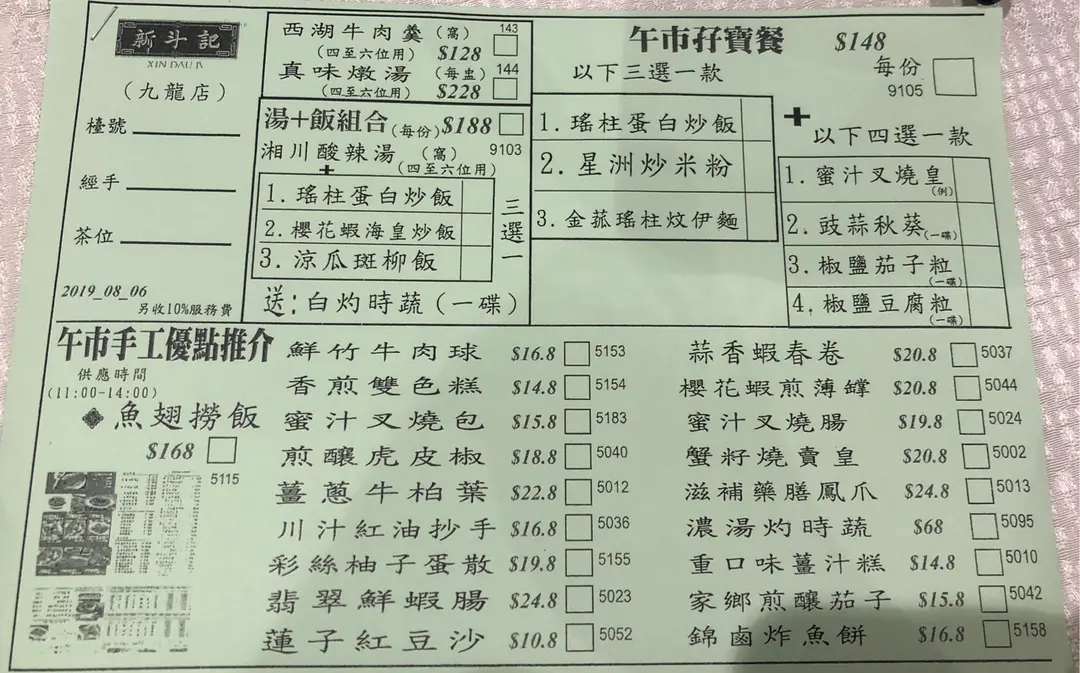 新斗記
XIN DAU JI
(九龍店)
檯號
經手
茶位
2019_08_06
另收10%服務費
西湖牛肉羹 (窩) 143
(四至六位用) $128
真味燉湯 (每盅) 144
(四至六位用) $228
湯+飯組合 (每份) $188
湘川酸辣湯 (窩) 9103
+ (四至六位用)
1. 瑤柱蛋白炒飯
2. 櫻花蝦海皇炒飯
3. 涼瓜斑柳飯
三選一
送:白灼時蔬(一碟)
午市孖寶餐 $148
以下三選一款 每份
9105
1. 瑤柱蛋白炒飯
2. 星洲炒米粉
3. 金菰瑤柱炆伊麵
+
以下四選一款
1. 蜜汁叉燒皇(例)
2. 豉蒜秋葵(一碟)
3. 椒鹽茄子粒(一碟)
4. 椒鹽豆腐粒(一碟)
午市手工優點推介
供應時間
(11:00-14:00)
魚翅撈飯
$168
5115
鮮竹牛肉球 $16.8 5153
香煎雙色糕 $14.8 5154
蜜汁叉燒包 $15.8 5183
煎釀虎皮椒 $18.8 5040
薑蔥牛柏葉 $22.8 5012
川汁紅油抄手 $16.8 5036
彩絲柚子蛋散 $19.8 5155
翡翠鮮蝦腸 $24.8 5023
蓮子紅豆沙 $10.8 5052
蒜香蝦春卷 $20.8 5037
櫻花蝦煎薄罉 $20.8 5044
蜜汁叉燒腸 $19.8 5024
蟹籽燒賣皇 $20.8 5002
滋補藥膳鳳爪 $24.8 5013
濃湯灼時蔬 $68 5095
重口味薑汁糕 $14.8 5010
家鄉煎釀茄子 $15.8 5042
錦鹵炸魚餅 $16.8 5158